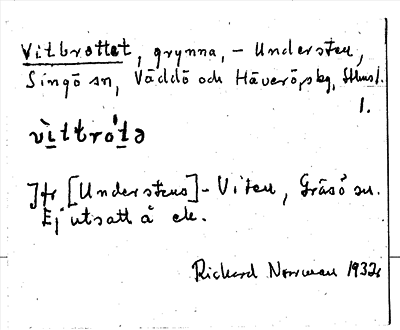 Vitbrottet, grynna, - Understen,
Singö sn, Väddö och Häverö, skg, Sthms l.
1.
vìtbrótə
Jfr [Understens] - Viten, Gräsö sn.
Ej utsatt å ek.
Rickard Norrman 1932